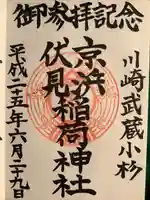 御参拝記念
川崎武蔵小杉
京浜
伏見稲荷神社
平成二十五年六月二十九日